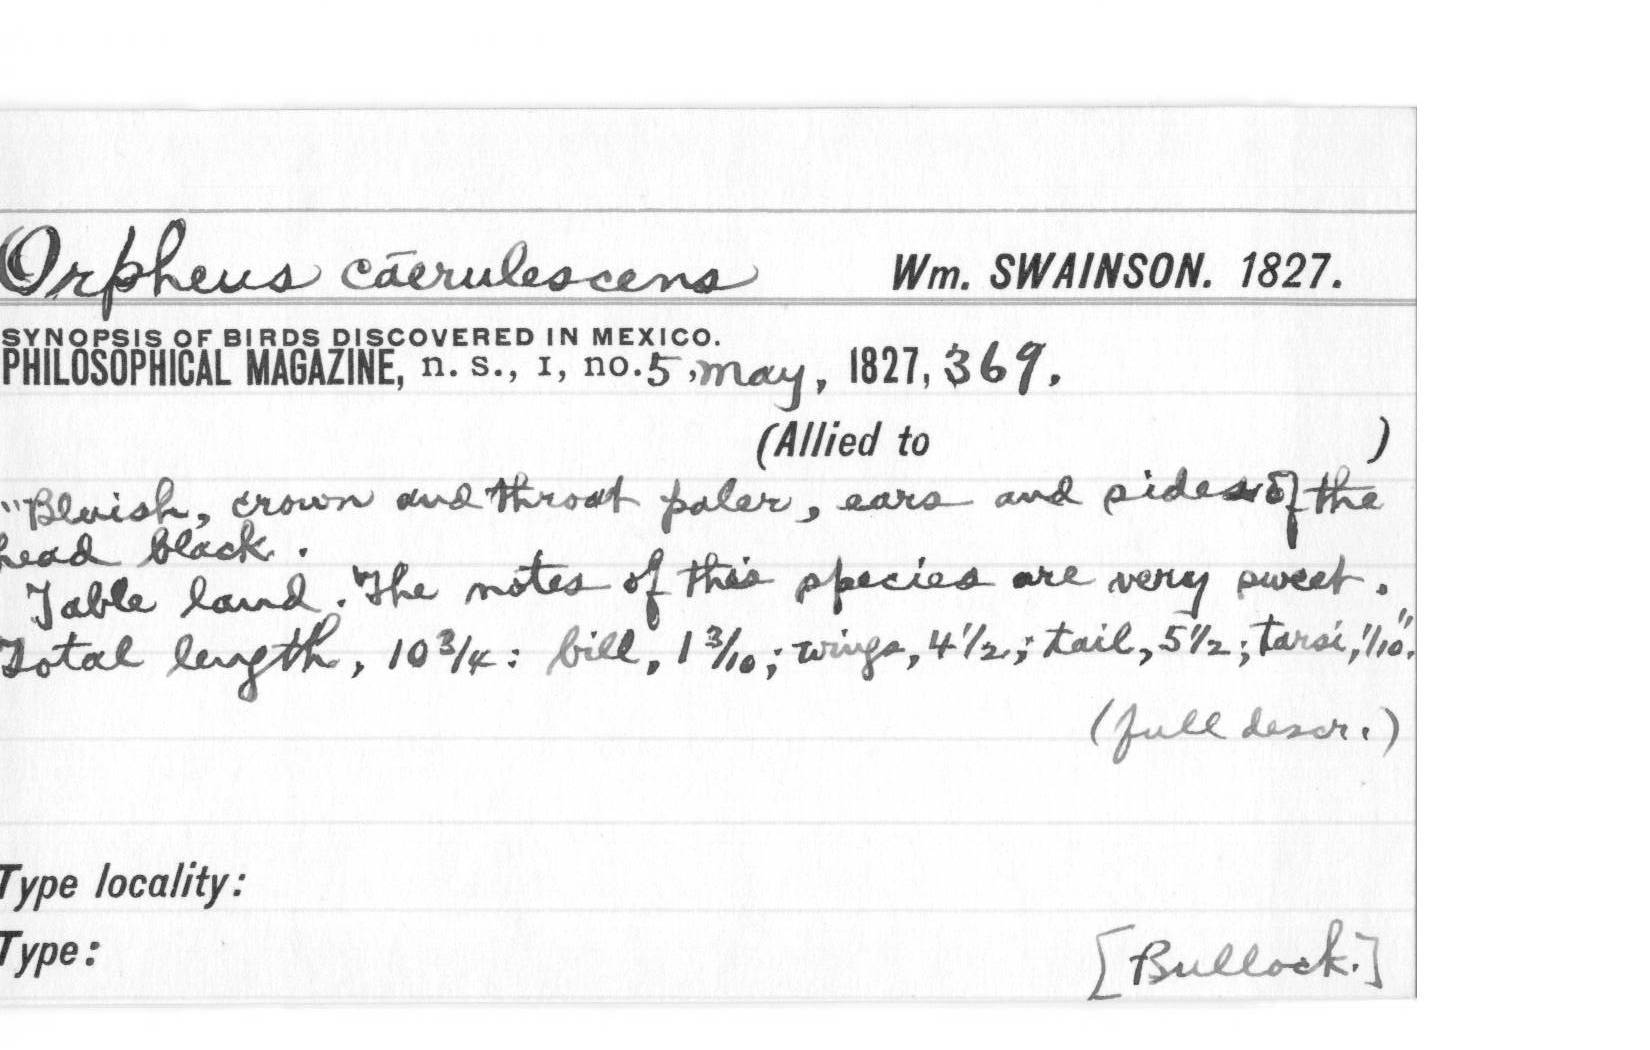 Orpheus cāerulescens Wm. SWAINSON. 1827.
SYNOPSIS OF BIRDS DISCOVERED IN MEXICO.
PHILOSOPHICAL MAGAZINE, n. s., I, no. 5, may, 1827, 369.
(Allied to )
"Bluish, crown and throat paler, ears and sides of the
head black.
Table land. The notes of this species are very sweet.
Total length, 10 3/4: bill, 1 3/10; wings, 4 1/2; tail, 5 1/2; tarsi, 1/10".
(full descr.)
Type locality:
Type: [Bullock.]